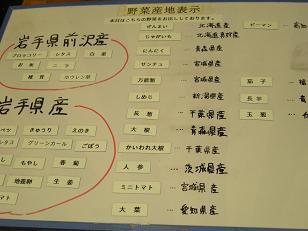 野菜産地表示
本日はこちらの野菜をお出ししております。
岩手県前沢産
ブロッコリー レタス 白菜
お米 ニラ
椎茸 ホウレン草
岩手県産
きゅうり えのき
レタス グリーンカール ごぼう
もやし 香菊
地養卵 生姜
ぜんまい 北海道産
じゃがいも 北海道美瑛産
にんにく 青森県産
サンチュ 宮城県産
万能葱 宮城県産
しめじ 新潟県産
長葱 千葉県産
大根 青森県産
かいわれ大根 千葉県産
人参 茨城県産
ミニトマト 宮城県産
大葉 愛知県産
ピーマン
茄子 福
長芋 青
玉葱